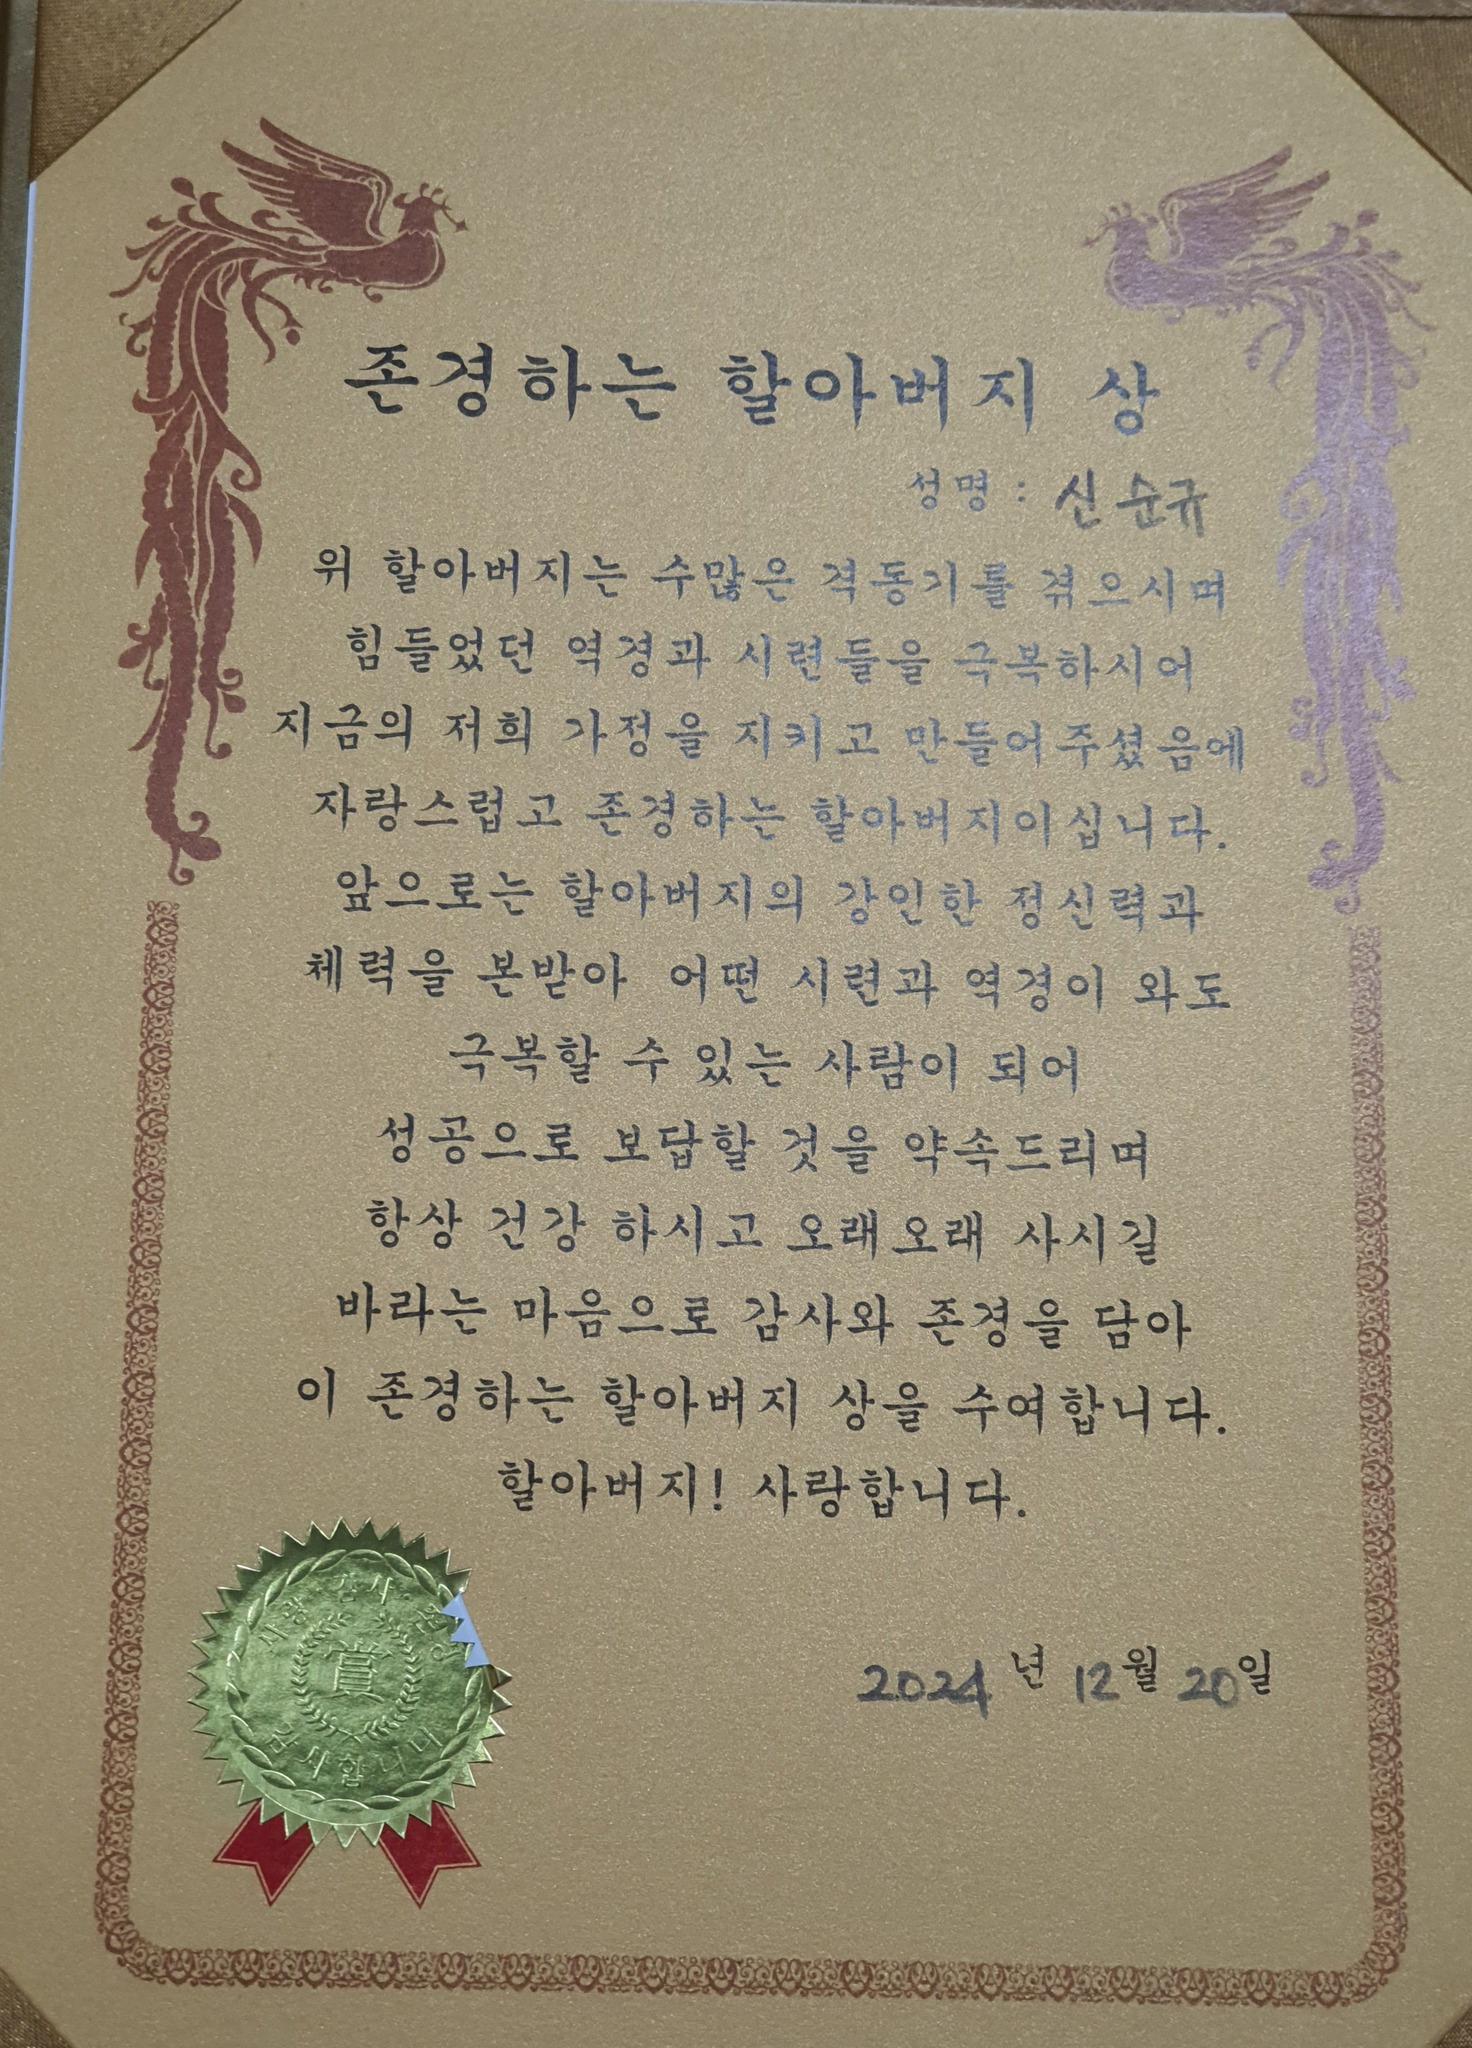 존경하는 할아버지 상
성명 : 신순규
위 할아버지는 수많은 격동기를 겪으시며
힘들었던 역경과 시련들을 극복하시어
지금의 저희 가정을 지키고 만들어주셨음에
자랑스럽고 존경하는 할아버지이십니다.
앞으로는 할아버지의 강인한 정신력과
체력을 본받아 어떤 시련과 역경이 와도
극복할 수 있는 사람이 되어
성공으로 보답할 것을 약속드리며
항상 건강 하시고 오래오래 사시길
바라는 마음으로 감사와 존경을 담아
이 존경하는 할아버지 상을 수여합니다.
할아버지! 사랑합니다.
賞
2024년 12월 20일